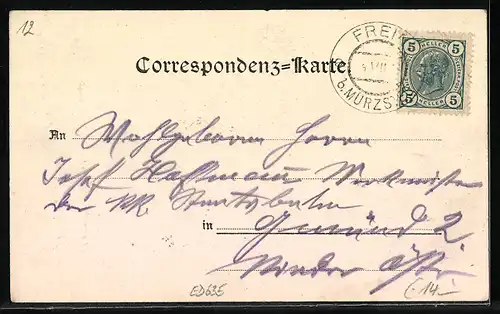 12
FREI
b. MÜRZS
5 HELLER 5
5 HELLER 5
Correspondenz=Karte
An Wohlgeboren Herrn
Josef Hollmann Werkmeister
der kk Staatsbahn
in Gmünd 2
Nieder Östr.
ED635
14.-